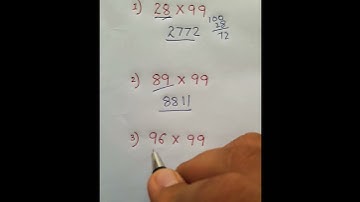 1) 28 x 99
100
28
72
2772
2) 89 x 99
8811
3) 96 x 99